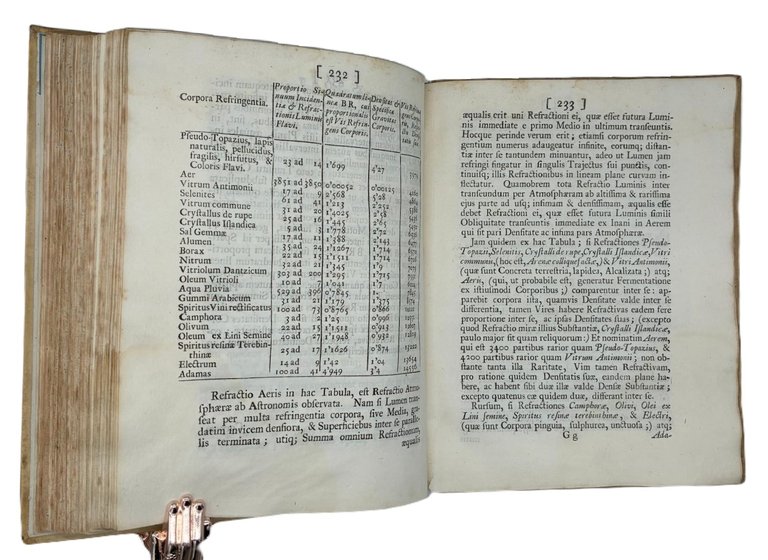 [ 232 ]
Corpora Refringentia.
Proportio Sinuum Incidentiæ & Refractionis Luminis Flavi.
Quadratum lineæ BR, cui proportionalis est Vis Refringens Corporis.
Densitas & Specifica Gravitas Corporis.
Pseudo-Topazius, lapis
naturalis, pellucidus,
fragilis, hirsutus, &
Coloris Flavi. 23 ad 14 1'699 4'27
Aer 3851 ad 3850 0'00052 0'00125
Vitrum Antimonii 17 ad 9 2'568 5'28
Selenites 61 ad 41
Vitrum commune 31 ad 20 1'4025 2'58
Crystallus de rupe 25 ad 16 1'445
Crystallus Islandica 5 ad 3 1'778 2'72
Sal Gemmæ 17 ad 11 1'388
Alumen 35 ad 24
Borax 22 ad 15
Nitrum 32 ad 21 1'345 1'9
Vitriolum Dantzicum 303 ad 200 1'295
Oleum Vitrioli 10 ad 7 1'041
Aqua Pluvia 529 ad 396 0'7845
Gummi Arabicum 31 ad 21 1'179
Spiritus Vini rectificatus 100 ad 73 0'8765 0'866
Camphora 3 ad 2 1'25 0'996
Olivum 22 ad 15 1'1511 0'913
Oleum ex Lini Semine 40 ad 27 1'1948 0'932
Spiritus resinæ Terebin-
thinæ 25 ad 17 1'1626 0'874
Electrum 14 ad 9 1'42 1'04 13654
Adamas 100 ad 41 4'949 3'4 14556
Refractio Aeris in hac Tabula, est Refractio Atmo-
sphæræ ab Astronomis observata. Nam si Lumen tran-
seat per multa refringentia corpora, sive Media, gra-
datim invicem densiora, & Superficiebus inter se paralle-
lis terminata ; utiq; Summa omnium Refractionum,
æqualis
[ 233 ]
æqualis erit uni Refractioni ei, quæ esset futura Lumi-
nis immediate e primo Medio in ultimum transeuntis.
Hocque perinde verum erit ; etiamsi corporum refrin-
gentium numerus adaugeatur infinite, eorumq; distan-
tiæ inter se tantundem minuantur, adeo ut Lumen jam
refringi fingatur in singulis Trajectus sui punctis, conti-
nuisq; illis Refractionibus in lineam plane curvam in-
flectatur. Quamobrem tota Refractio Luminis inter
transeundum per Atmosphæram ab altissima & rarissima
ejus parte ad usq; infimam & densissimam, æqualis esse
debet Refractioni ei, quæ esset futura Luminis simili
Obliquitate transeuntis immediate ex Inani in Aerem
qui sit pari Densitate ac infima pars Atmosphæræ.
Jam quidem ex hac Tabula ; si Refractiones Pseudo-
Topazii, Selenitis, Crystalli de rupe, Crystalli Islandicæ, Vitri
communis, (hoc est, Arenæ colliquefactæ,) & Vitri Antimonii,
(quæ sunt Concreta terrestria, lapidea, Alcalizata) ; atq;
Aeris, (qui, ut probabile est, generatur Fermentatione
ex istiusmodi Corporibus ;) comparentur inter se : ap-
parebit corpora ista, quamvis Densitate valde inter se
differentia, tamen Vires habere Refractivas eadem fere
proportione inter se, ac ipsas Densitates suas ; (excepto
quod Refractio miræ illius Substantiæ, Crystalli Islandicæ,
paulo major sit quam reliquorum :) Et nominatim Aerem,
qui est 3400 partibus rarior quam Pseudo-Topazius, &
4200 partibus rarior quam Vitrum Antimonii ; non ob-
stante tanta illa Raritate, Vim tamen Refractivam,
pro ratione quidem Densitatis suæ, eandem plane ha-
bere, ac habent sibi duæ illæ valde Densæ Substantiæ ;
excepto quatenus eæ quidem duæ, differant inter se.
Rursum, si Refractiones Camphoræ, Olivi, Olei ex
Lini semine, Spiritus resinæ terebinthinæ, & Electri,
(quæ sunt Corpora pinguia, sulphurea, unctuosa ;) atq;
G g Ada-